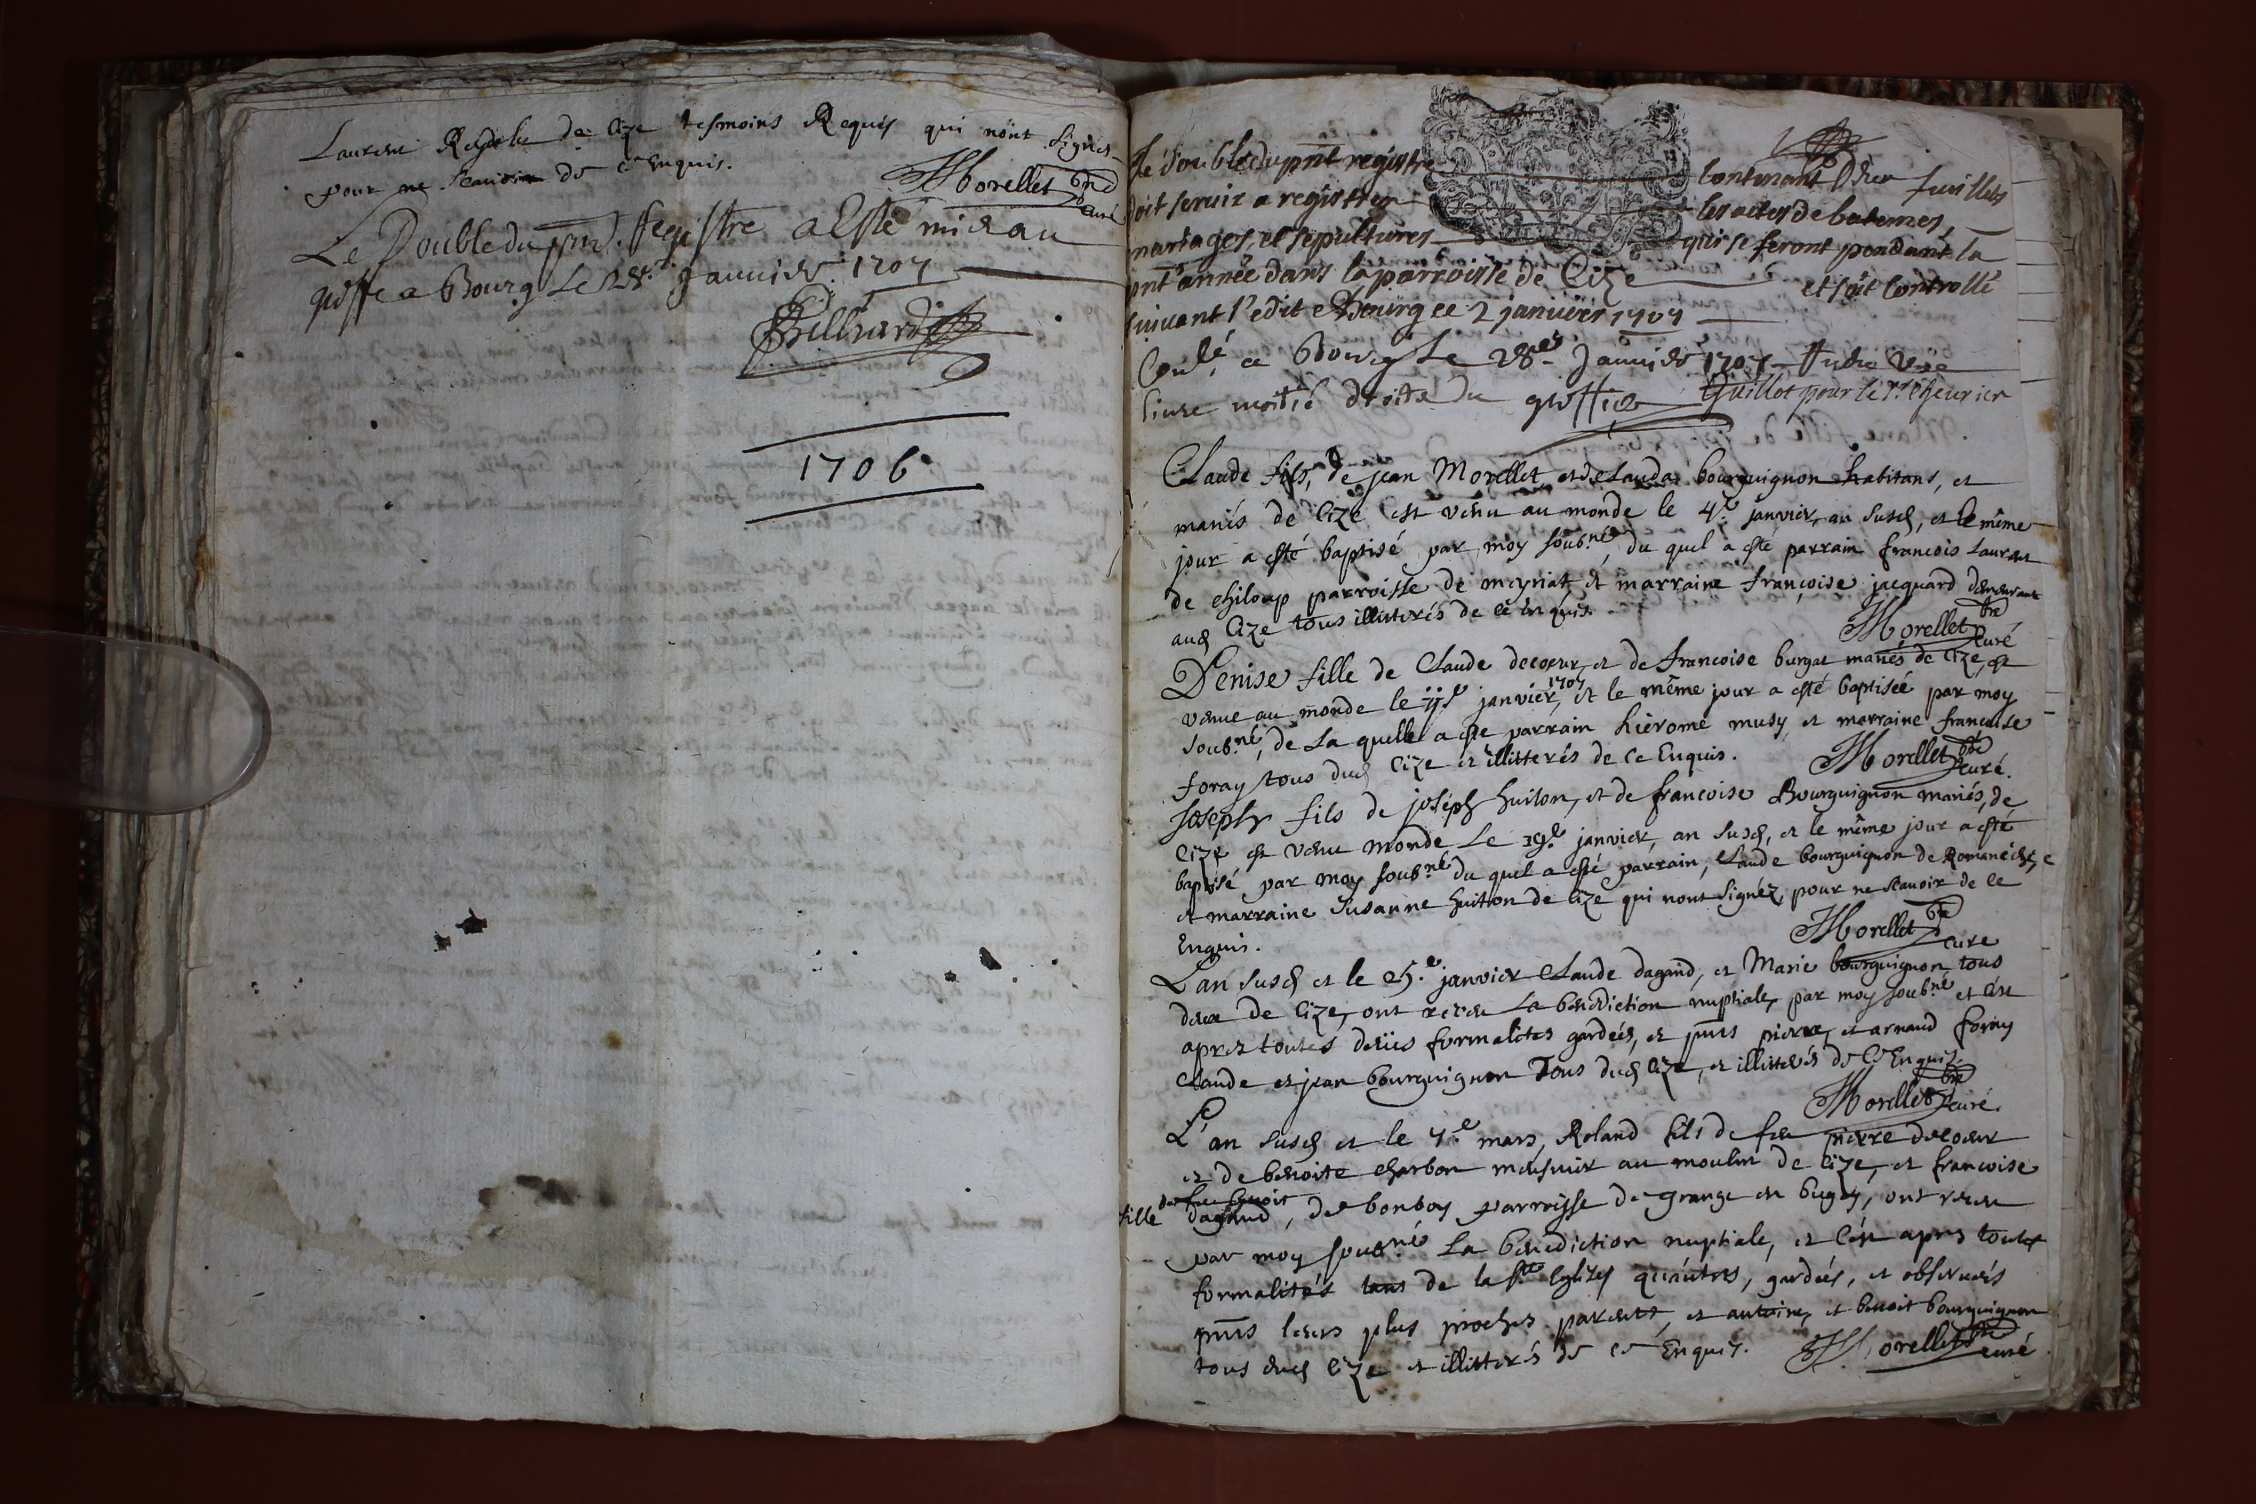 Laurent de Cize tesmoins Requis qui nont signés
pour ne scauoir de ce Enquis.
Morellet pbre curé
Le Double du pnt. Registre a Esté mis au
greffe a Bourg Le 28e. Januier 1707
1706
Le double du pnt registre contenant feuillets
doit seruir a registrer les actes de batemes,
mariages, et sepultures qui se feront pendant la
pnt année dans la parroisse de Cize et soit controllé
suiuant l'edit a Bourg ce 2 januier 1707
Conlé a Bourg Le 28e. Januier 1707
liure moitié droits du greffier Guillot pour le Sr.
Claude fils, de jean Morellet et de Clauda bourguignon habitans, et
mariés de Cize est venu au monde le 4.e janvier, an susd, et le même
jour a esté baptisé par moy soub.né, du quel a esté parrain francois Laurent
de chiloup parroisse de meyriat, et marraine françoise jacquard demeurant
aud Cize tous illitterés de ce enquis.
Morellet pbre Curé
Denise fille de Claude decoeur, et de francoise burgat mariés de Cize, est
venue au monde le janvier, 1707 et le même jour a esté baptisée par moy
soub.né, de La quelle a este parrain hiérome musy, et marraine francoise
foray tous dud Cize et illitterés de Ce Enquis.
Morellet pbre curé.
Joseph fils de joseph huiton, et de francoise Bourguignon mariés, de
Cize est venu monde Le 19.e janvier, an susd, et le même jour a esté
baptisé par moy soub.né du quel a esté parrain, Claude bourguignon de
et marraine Susanne huiton de Cize qui nont signéz pour ne scavoir de ce
Enquis.
Morellet pbre cure
L'an susd et le 25.e janvier Claude dagand, et Marie bourguignon tous
deux de Cize, ont receu La benediction nuptiale, par moy soub.né et c'est
aprez toutes deües formalités gardées, et pnts pierre, et arnaud foray
Claude et jean bourguignon Tous dud Cize, et illitterés de Ce Enquis.
Morellet pbre curé.
L'an susd et le 7.e mars, Roland fils de feu pierre decoeur
et de benoite charbon meusnier au moulin de Cize, et francoise
fille de feu benoit dagand, de bonboy parroisse de grange en bugey, ont receu
par moy soub.né La benediction nuptiale, et c'est apres toutes
formalités tant de la ste Eglise qu'autres, gardées, et observés
pnts leurs plus proches parents, et antoine, et benoit bourguignon
tous dud Cize et illitterés de ce Enquis.
Morellet pbre curé